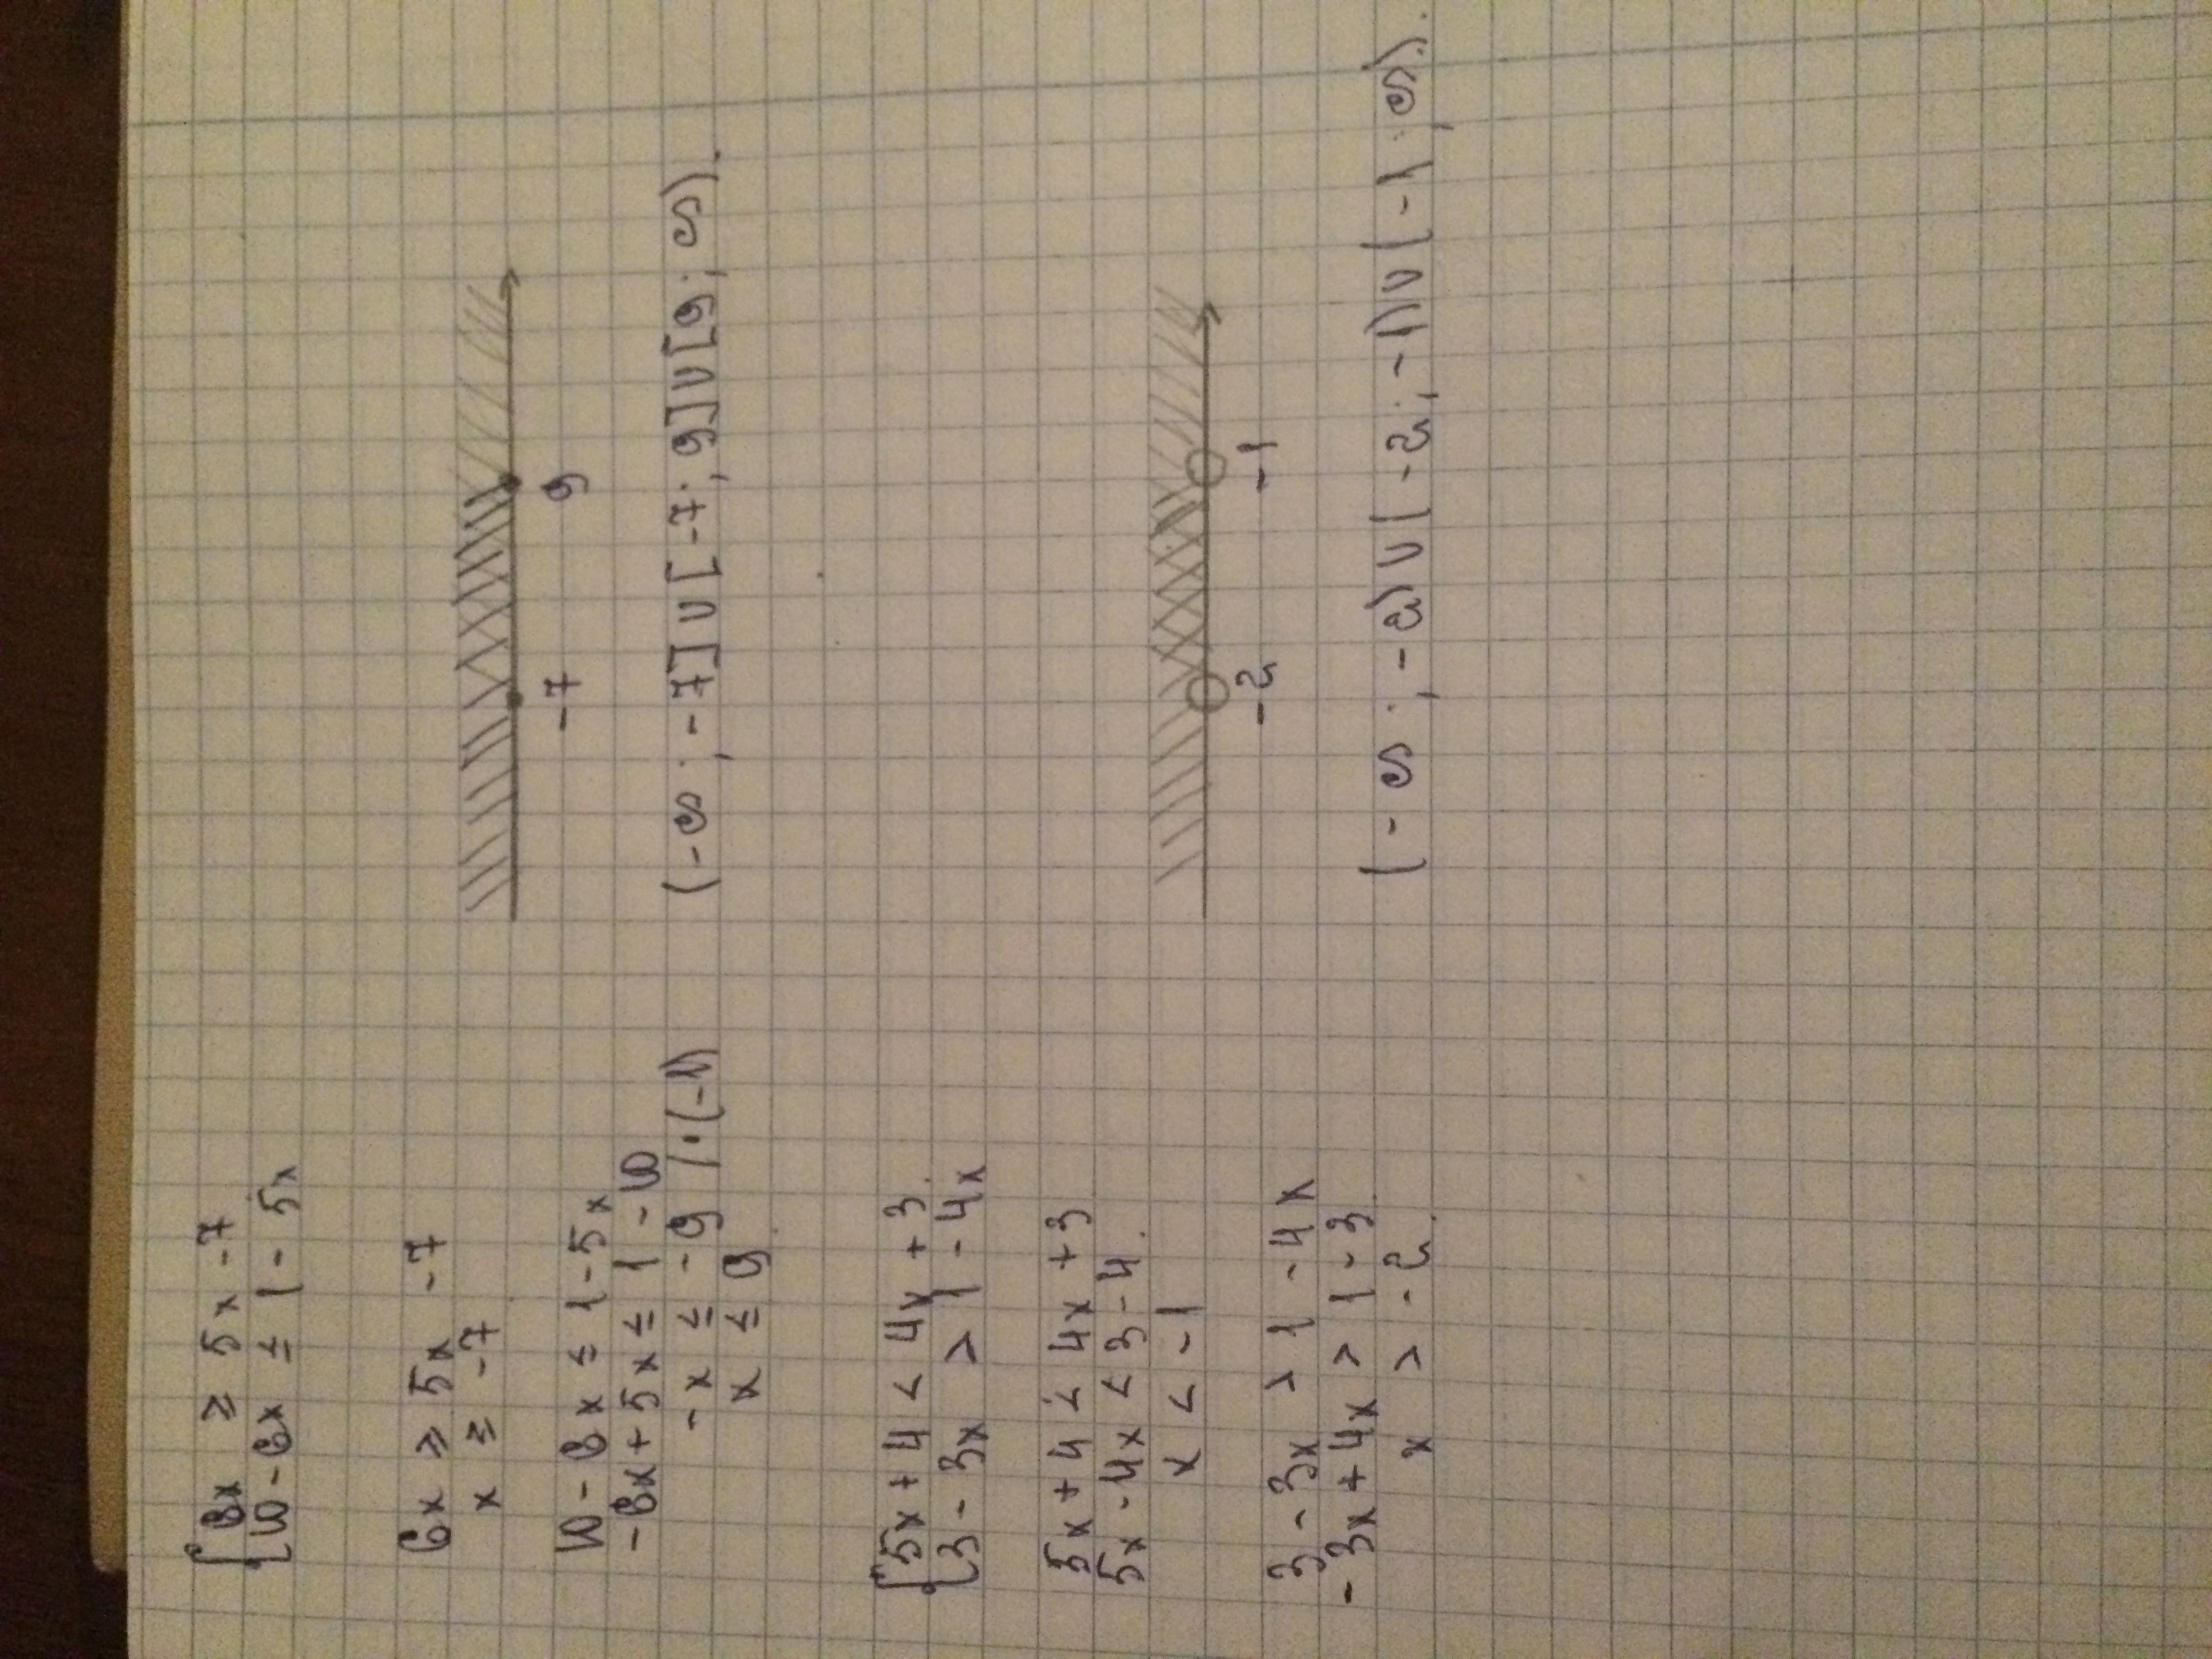 {6x ≥ 5x -7
{10-6x ≤ 1-5x
6x ≥ 5x -7
x ≥ -7
10-6x ≤ 1-5x
-6x+5x ≤ 1-10
-x ≤ -9 /·(-1)
x ≤ 9
-7 9
(-∞; -7]∪[-7; 9]∪[9; ∞).
{5x+4 < 4x+3
{3-3x > 1-4x
5x+4 < 4x+3
5x-4x < 3-4.
x < -1
3-3x > 1-4x
-3x+4x > 1-3
x > -2.
-2 -1
(-∞; -2)∪(-2; -1)∪(-1; ∞).